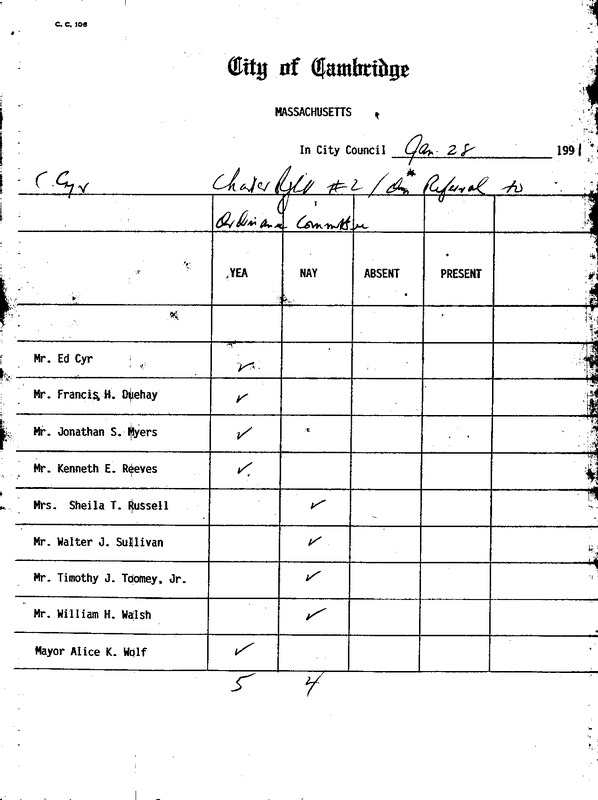 C. C. 106
City of Cambridge
MASSACHUSETTS
In City Council Jan. 28 1991
C. Cyr Charter Right #2 / On Referral to
Ordinance Committee
YEA NAY ABSENT PRESENT
Mr. Ed Cyr ✓
Mr. Francis H. Duehay ✓
Mr. Jonathan S. Myers ✓
Mr. Kenneth E. Reeves ✓
Mrs. Sheila T. Russell ✓
Mr. Walter J. Sullivan ✓
Mr. Timothy J. Toomey, Jr. ✓
Mr. William H. Walsh ✓
Mayor Alice K. Wolf ✓
5 4